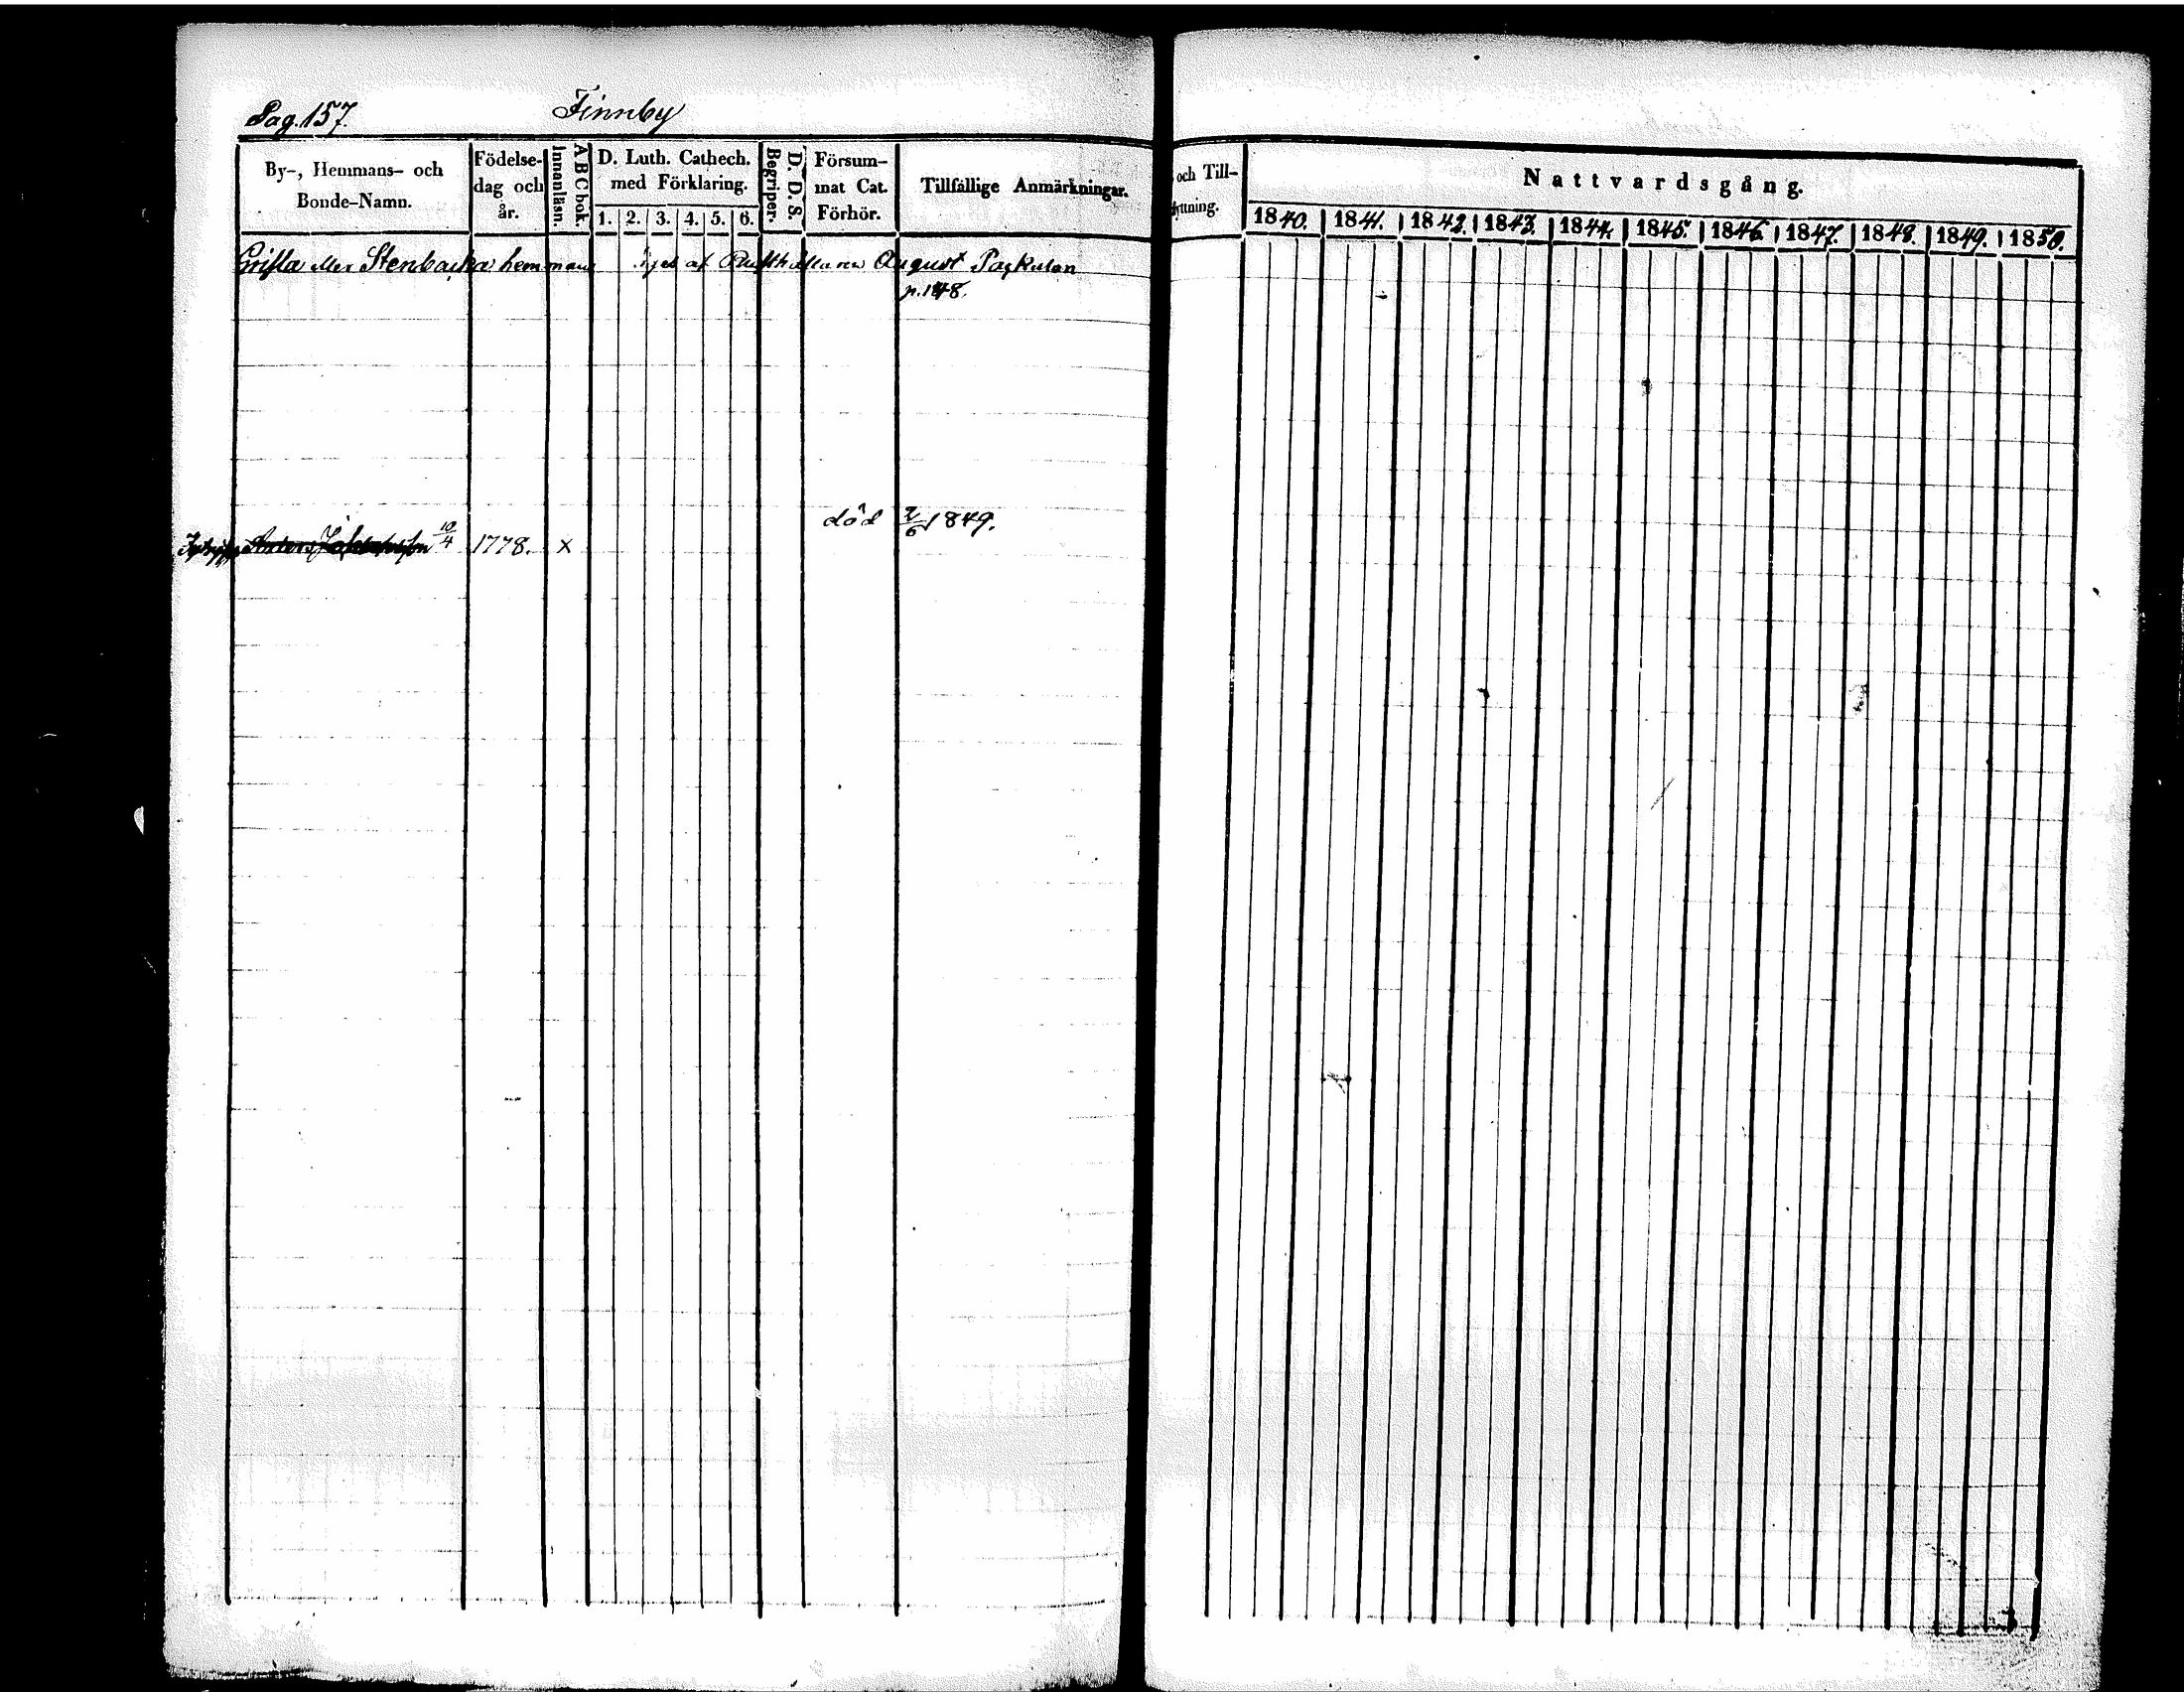 Pag. 157.
Finnby
By-, Hemmans- och Bonde-Namn.
Födelse-dag och år.
A B C bok. Innanläsn.
D. Luth. Cathech. med Förklaring.
1. 2. 3. 4. 5. 6.
D. D. S. Begriper.
Försum-mat Cat. Förhör.
Tillfällige Anmärkningar.
och Till-
flyttning.
Nattvardsgång.
1840. 1841. 1842. 1843. 1844. 1845. 1846. 1847. 1848. 1849. 1850.
eller Stenbacka hemman af Rusthållaren August
p. 148.
död 2/6 1849.
Anders 10/4 1778. x